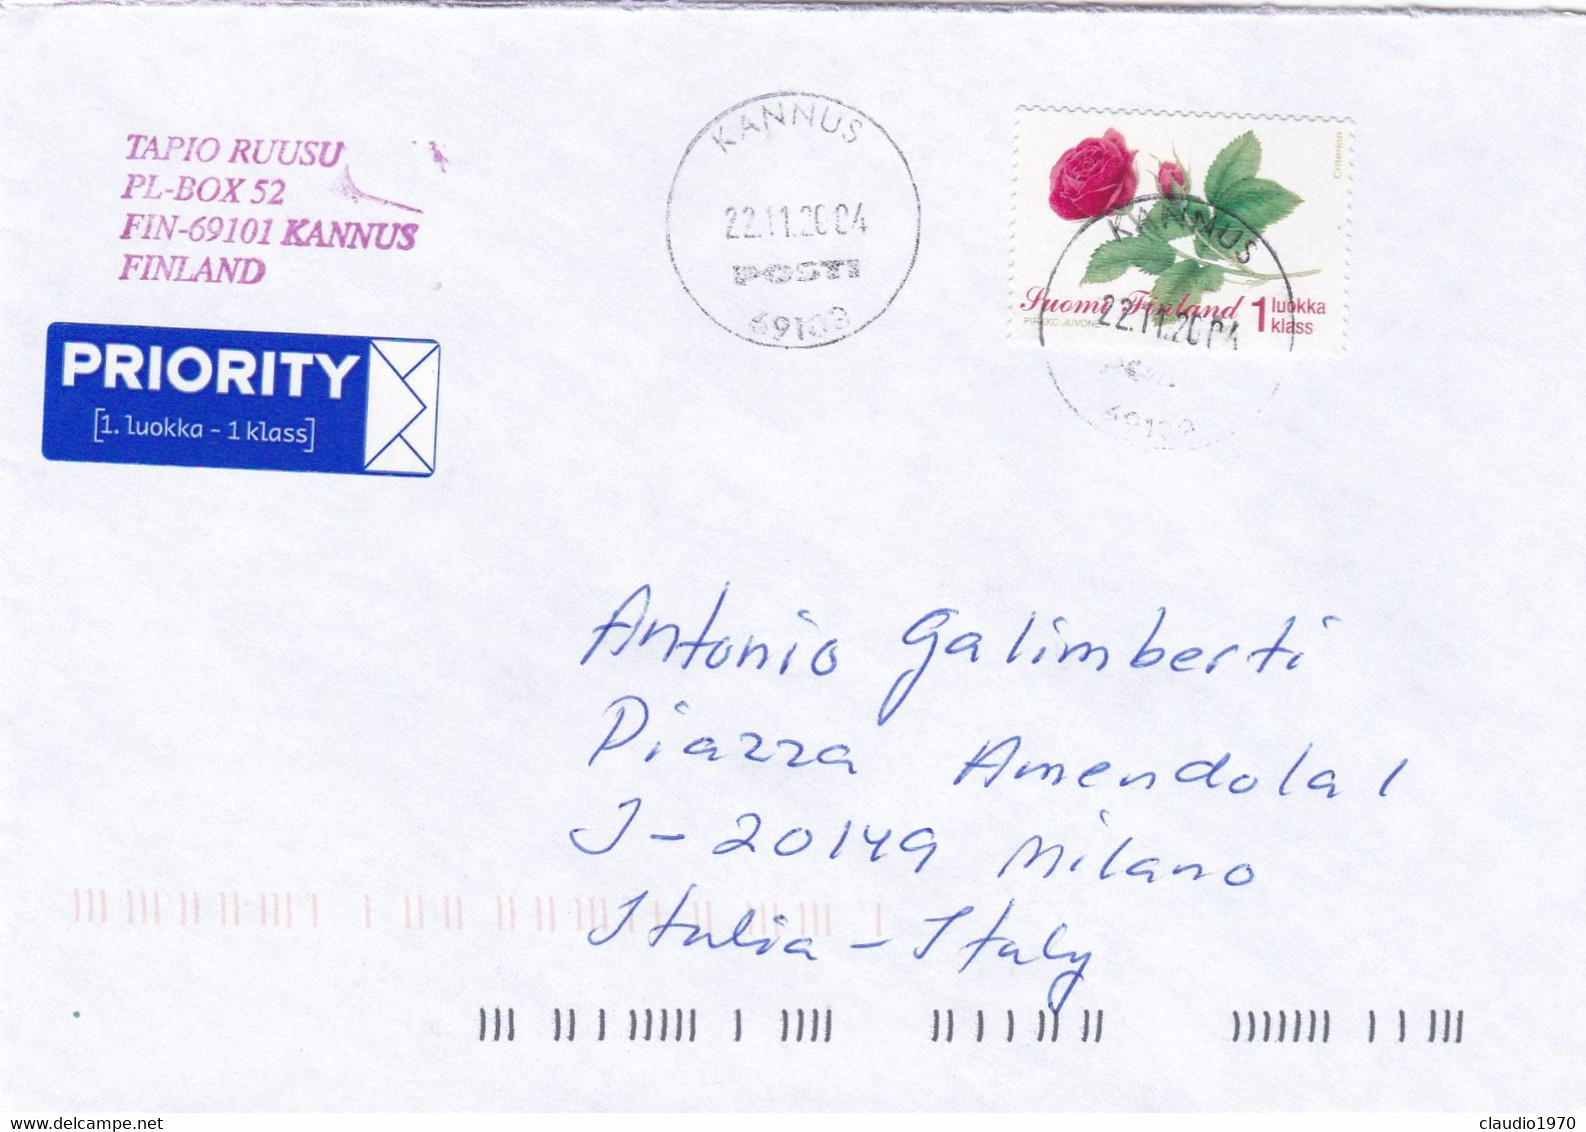 TAPIO RUUSU
PL-BOX 52
FIN-69101 KANNUS
FINLAND
PRIORITY
[1. luokka - 1 klass]
KANNUS
22.11.2004
POSTI
69100
Criterion
Suomi Finland 1 luokka
klass
PIRKKO JUVONEN
KANNUS
22.11.2004
Antonio Galimberti
Piazza Amendola 1
I-20149 Milano
Italia-Italy
delcampe.net
claudio1970